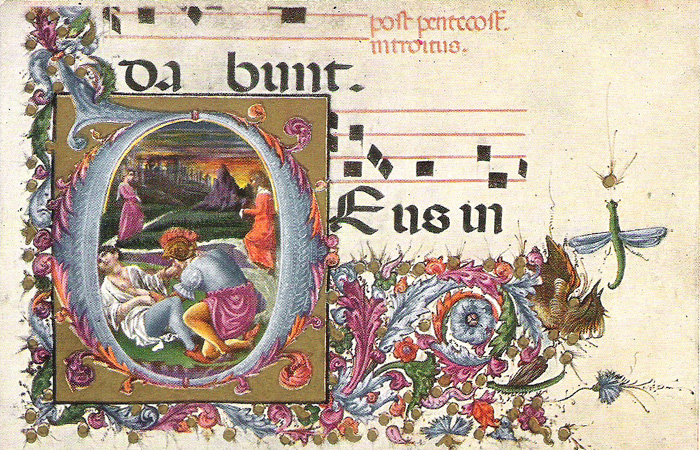 post pentecost.
introitus.
da bunt.
DEus in